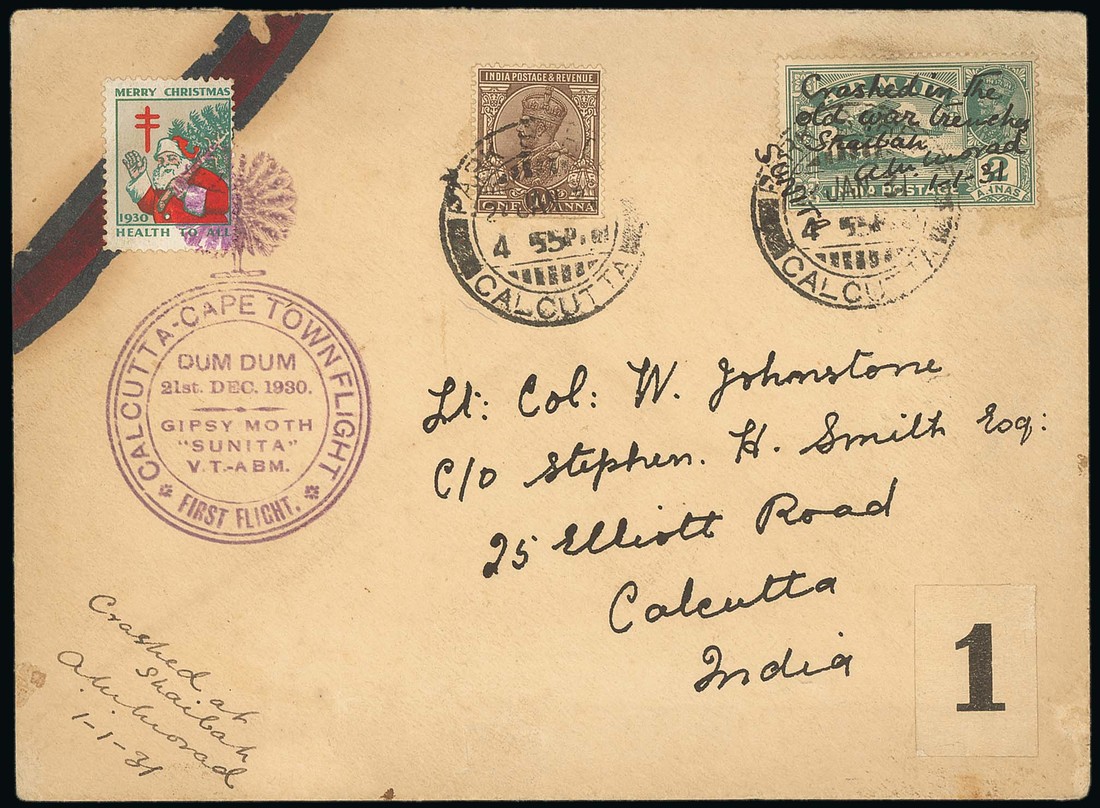 MERRY CHRISTMAS
1930
HEALTH TO ALL
INDIA POSTAGE & REVENUE
ONE ANNA
CALCUTTA
4 55P.M
MAIL
POSTAGE
2
ANNAS
Crashed in the
old war trenches
Shaibah
1-1-31
JAN
4 55P
CALCUTTA
CALCUTTA-CAPE TOWN FLIGHT
DUM DUM
21st. DEC. 1930.
GIPSY MOTH
"SUNITA"
V.T.-ABM.
FIRST FLIGHT.
Lt: Col: W. Johnstone
C/o Stephen. H. Smith Esq:
25 Elliott Road
Calcutta
India
Crashed at
Shaibah
1-1-31
1